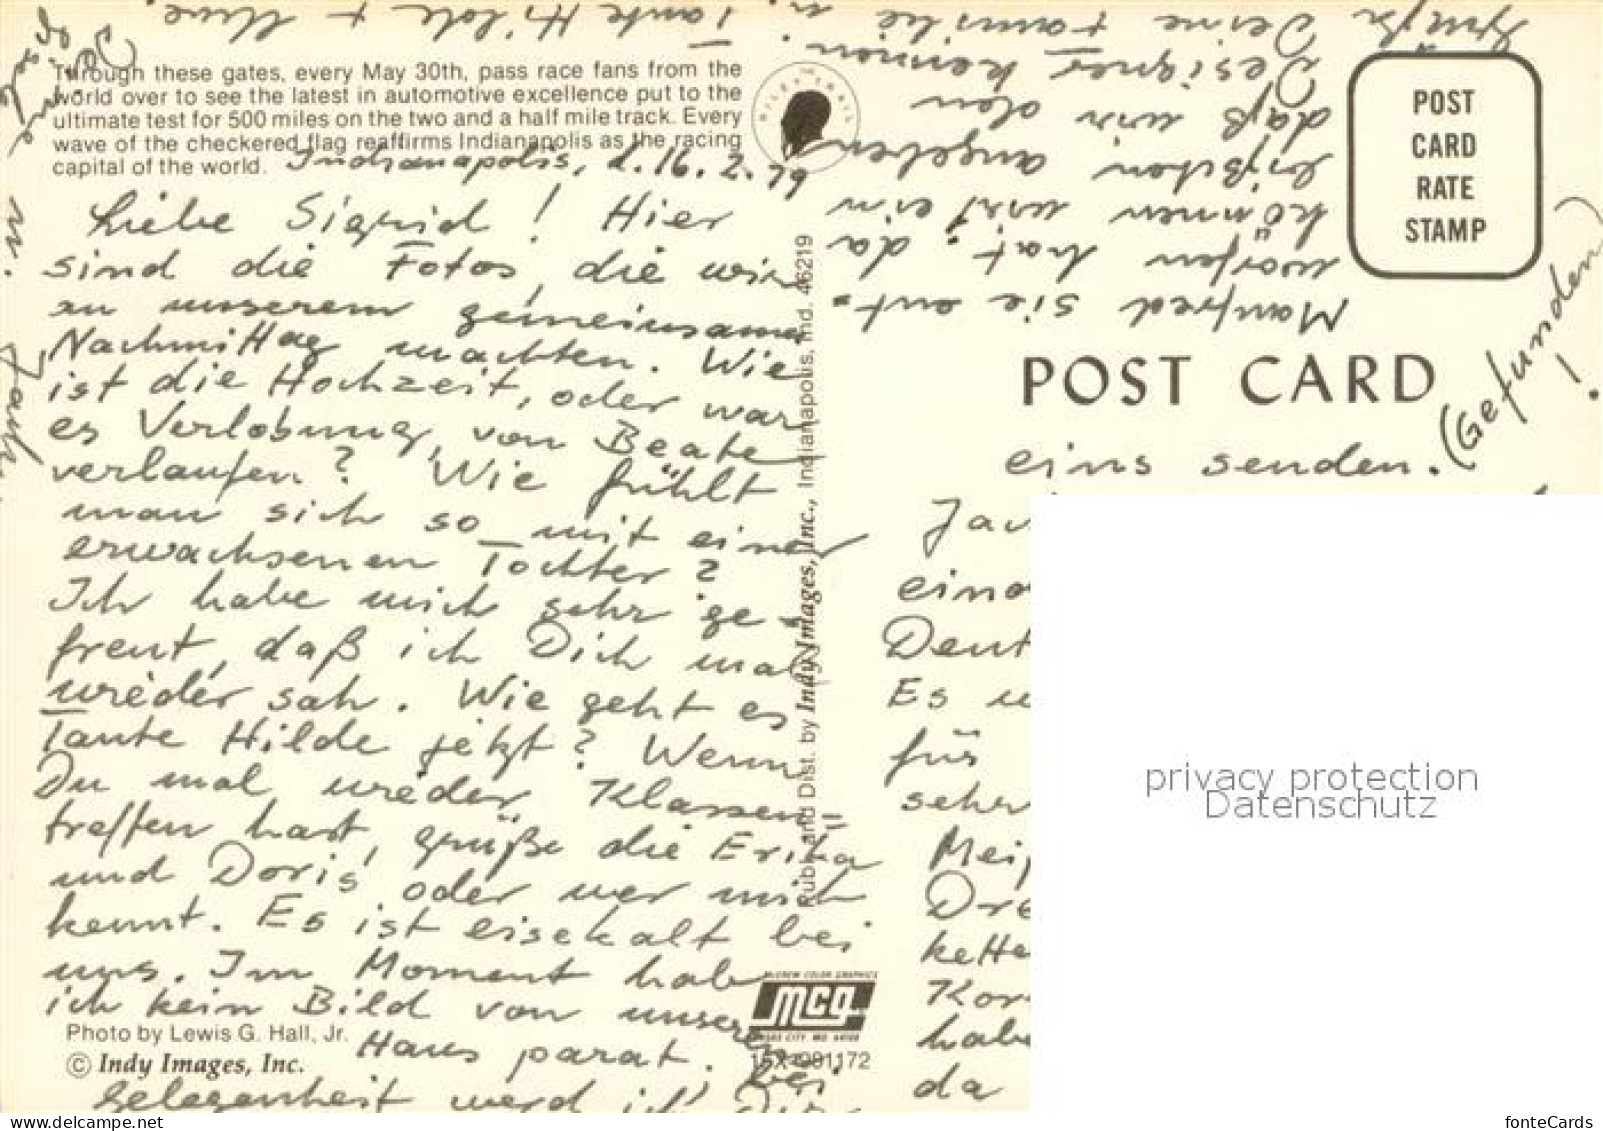 Through these gates, every May 30th, pass race fans from the
world over to see the latest in automotive excellence put to the
ultimate test for 500 miles on the two and a half mile track. Every
wave of the checkered flag reaffirms Indianapolis as the racing
capital of the world.
Indianapolis, d. 16. 2. 79
Liebe Sigrid! Hier
sind die Fotos, die wir
an unserem gemeinsamen
Nachmittag machten. Wie
ist die Hochzeit, oder war
es Verlobung, von Beate
verlaufen? Wie fühlt
man sich so mit einer
erwachsenen Tochter?
Ich habe mich sehr ge-
freut, daß ich Dich mal
wieder sah. Wie geht es
Tante Hilde jetzt? Wenn
Du mal wieder Klassen=
treffen hast, grüße die Erika
und Doris oder wer mich
kennt. Es ist eisekalt bei
uns. Im Moment hab
ich kein Bild von unserem
Haus parat. Bei
Gelegenheit werd ich Dir
Photo by Lewis G. Hall, Jr.
© Indy Images, Inc.
Publ. and Dist. by Indy Images, Inc., Indianapolis, Ind. 46219
McGREW COLOR GRAPHICS
mcg
KANSAS CITY, MO. 64108
POST
CARD
RATE
STAMP
POST CARD
eins senden. (Gefunden)!
eine
Deut
Es
für
sehr
Dre
kette
Kor
habe
da
Manfred sie ent=
worfen hat, da
können wir ein
bißchen angeben,
daß wir den
Designer kennen.
Deine Familie
Tante Hilde +
privacy protection
Datenschutz
www.ansichtskartenversand.com
fonteCards